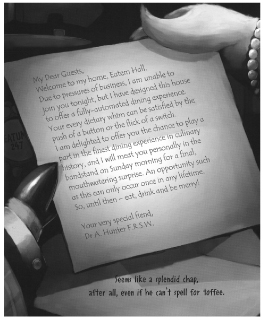 My Dear Guests,
Welcome to my home, Eutum Hall.
Due to pressures of business, I am unable to
join you tonight, but I have designed this house
to offer a fully-automated dining experience.
Your every dictary wish can be satisfied by the
push of a button or the flick of a switch.
I am delighted to offer you the chance to play a
part in the finest dining experience in culinary
history, and I will meet you personally in the
bandstand on Sunday morning for a final,
mouthwatering surprise. An opportunity such
as this can only occur once in any lifetime.
So, until then – eat, drink and be merry!
Your very special friend,
Dr. A. Hunter F.R.S.W.
Seems like a splendid chap,
after all, even if he can't spell for toffee.